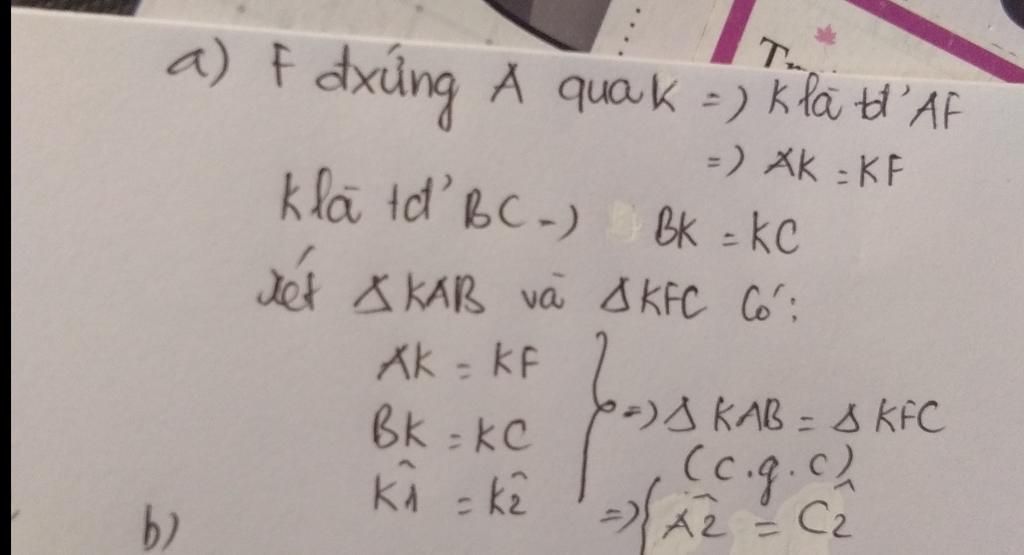 a) F đxứng A qua K => K là tđ' AF
=> AK = KF
K là tđ' BC -> BK = KC
xét Δ KAB và Δ KFC Có:
AK = KF
BK = KC
=> Δ KAB = Δ KFC
(c.g.c)
K̂1 = K̂2
=> { Â2 = Ĉ2
b)